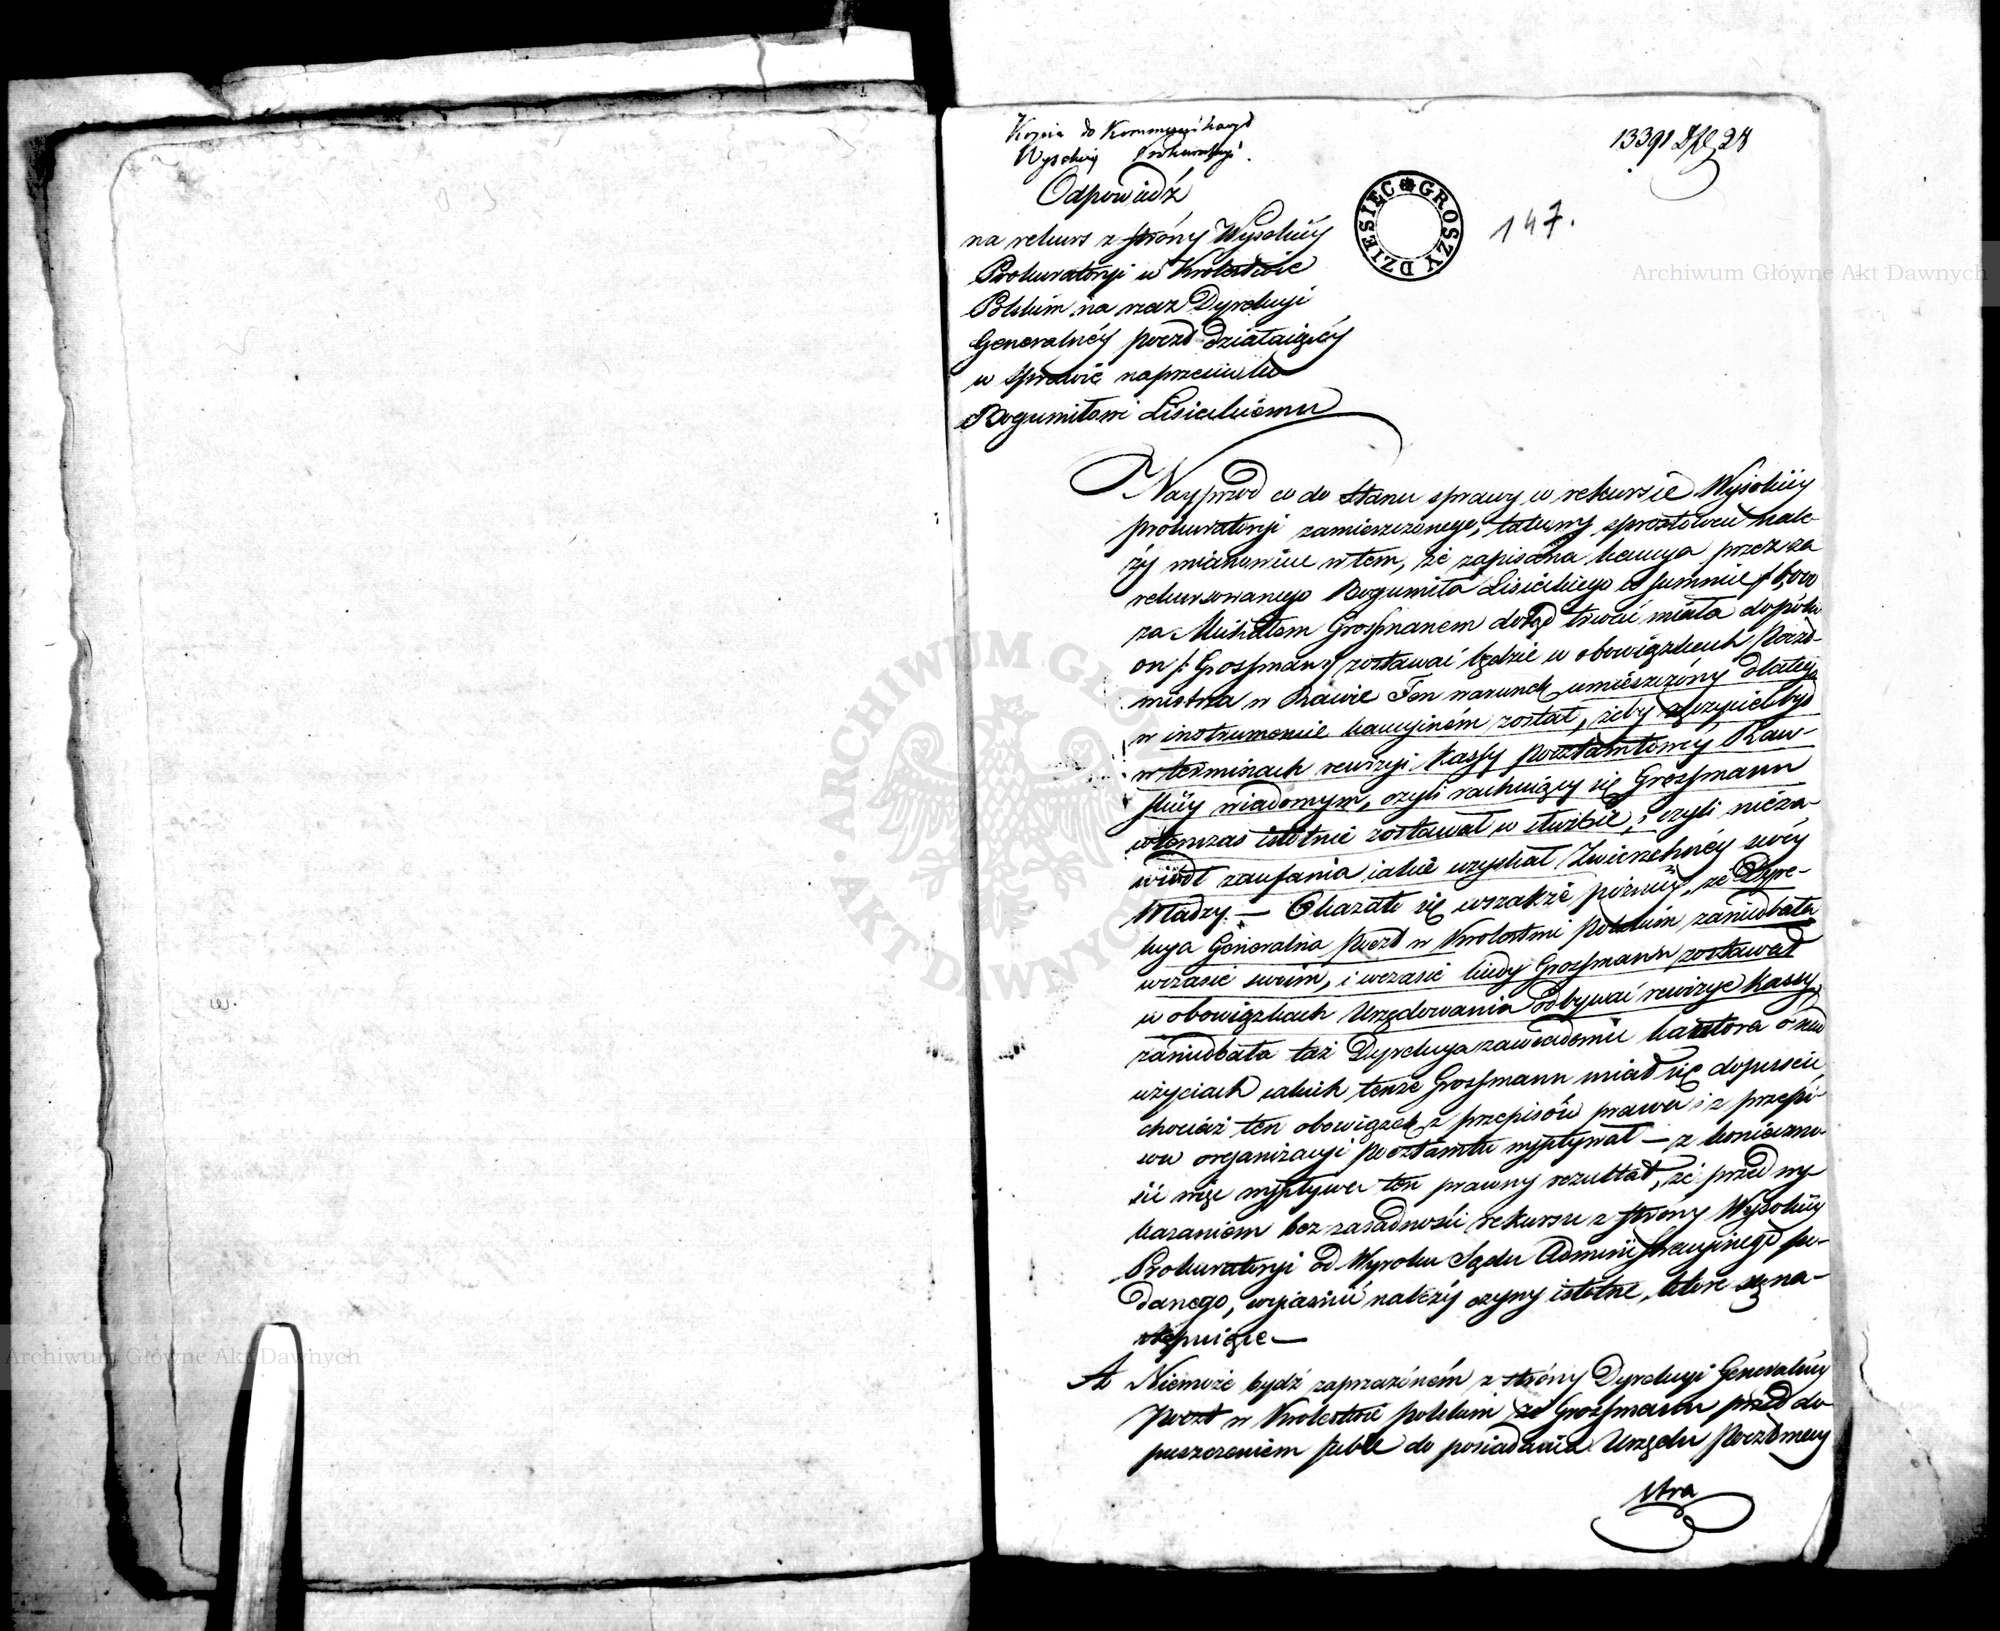 Kopia do Kommunikacyi
Wysokiéy Prokuratoryi.
13391 28
Odpowiedź
DZIESIEC GROSZY
147.
na rekurs z stróny Wysokiéy
Prokuratoryi w Krolestwie
Polskim na rzecz Dyrekcyi
Generalnéy poczt działaiącéy
w sprawie naprzeciwko
Bogumiłowi Lisieckiemu
Nayprzod co do stanu sprawy w rekursie Wysokiéy
prokuratoryi zamieszczonego, takowy sprostować nale-
ży mianowicie w tem, że zapisana kaucya przez za
rekursowanego Bogumiła Lisieckiego w summie f 6,000
za Michałem Grossmanem dotąd trwać miała dopóki
on /: Grossman :/ zostawać będzie w obowiązkach Poczt-
mistrza w Rawie Ten warunek umieszczóny dlatego
w instrumencie kaucyiném został, żeby ręczyciel był
w terminach rewizyi Kassy pocztamtowéy Raw-
skiéy wiadomym, czyli rachuiący się Grossmann
wtenczas istotnie zostawał w służbie, czyli niéza-
wiódł zaufania iakie uzyskał Zwierzchnéy swéy
Władzy. — Okazało się wszakże póżniéy, że Dyre-
kcya Generalna Poczt w Krolestwie Polskim zaniedbała
wczasie swoim, i wczasie kiedy Grossmann zostawał
w obowiązkach Urzędowania odbywać rewizye Kassy,
zaniedbała taż Dyrekcya zawiadomić kautora o nad
użyciach iakich tenże Grossmann miał się dopuścić,
chociaż ten obowiązek z przepisów prawa i z przepi-
sów organizacyi pocztamtu wypływał — z konieczno-
ści więc wypływa ten prawny rezultat, że przed wy-
kazaniem bez zasadności rekursu z strony Wysokiéy
Prokuratoryi od Wyroku Sądu Administracyinego po-
danego, wyjaśnić należy czyny istotne, które są na-
stępuiące —
A Niemoże bydź zaprzeczóném z stróny Dyrekcyi Generalnéy
Poczt w Krolestwie polskim że Grossmann przed do-
puszczeniem siebie do posiadania Urzędu Pocztmay
stra
Archiwum Główne Akt Dawnych
ARCHIWUM GŁÓWNE AKT DAWNYCH
Archiwum Główne Akt Dawnych